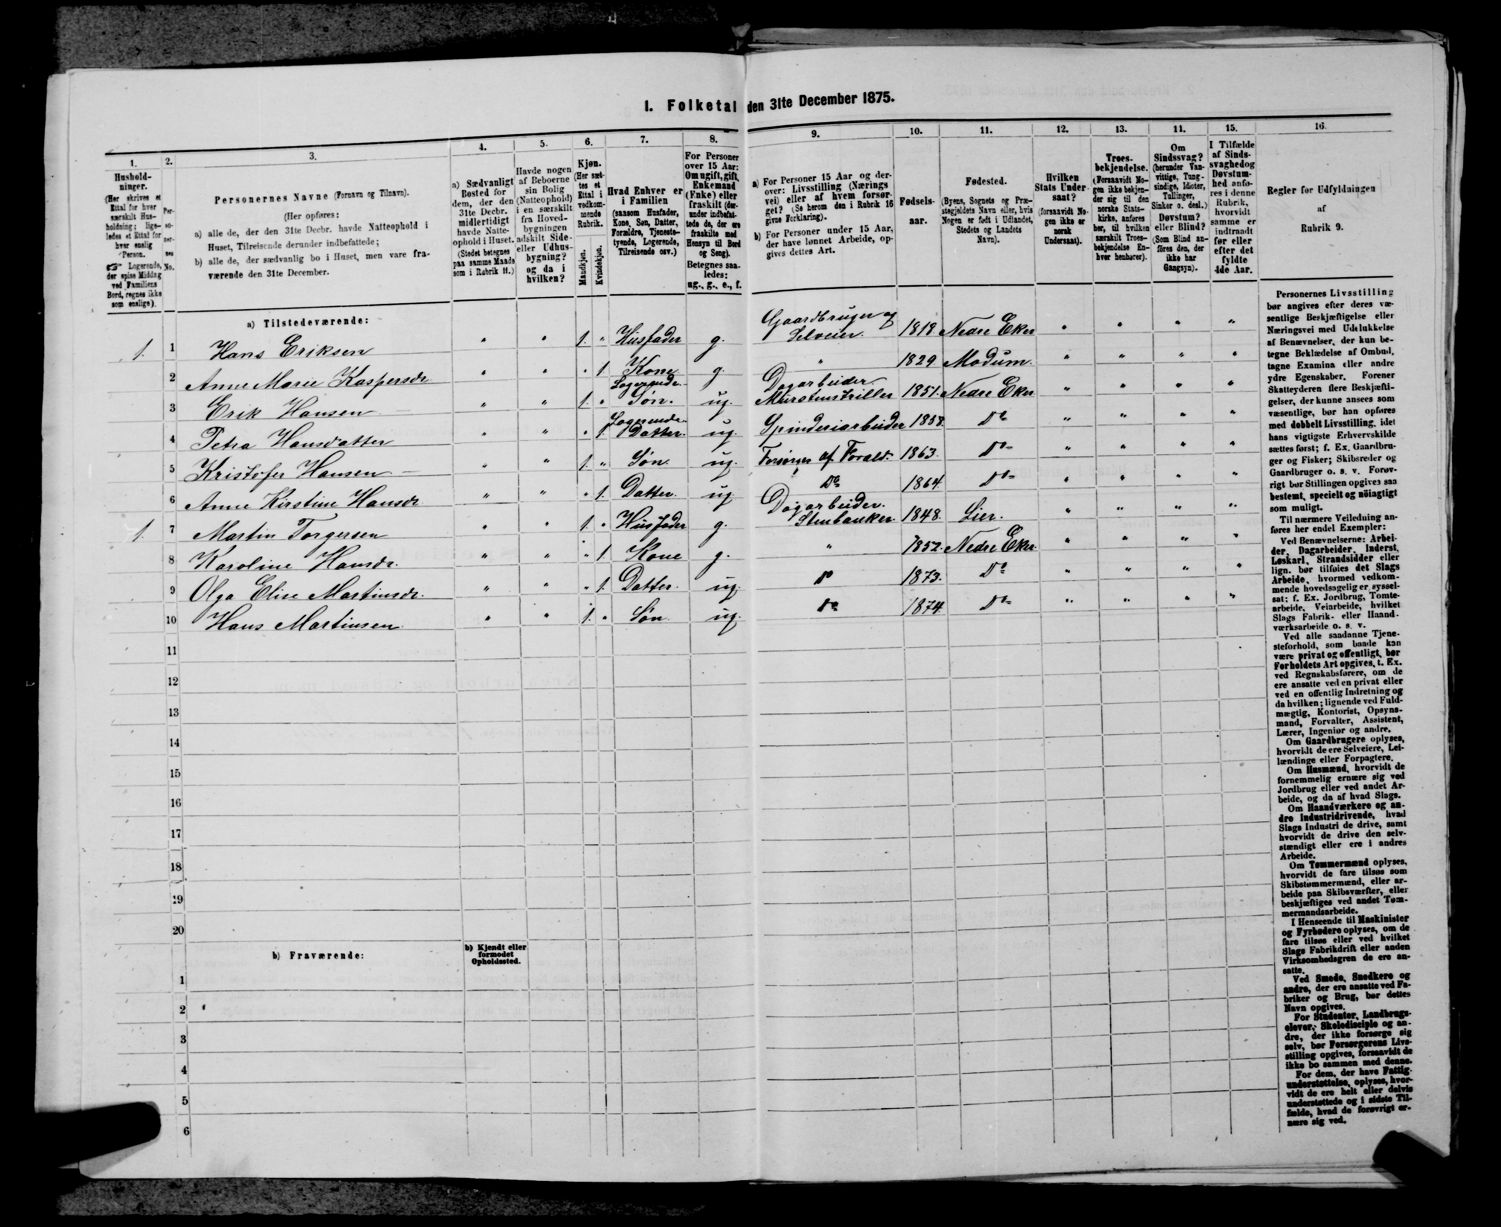 I. Folketal den 31te December 1875.
1.
Hushold-
ninger.
(Her skrives et
Ettal for hver
særskilt Hus-
holdning; lige-
ledes et Ettal for
hver enslig
Person.
☞ Logerende,
der spise Middag
ved Familiens
Bord, regnes ikke
som enslige).
2.
Per-
so-
ner-
nes
No.
3.
Personernes Navne (Fornavn og Tilnavn).
(Her opføres:
a) alle de, der den 31te Decbr. havde Natteophold i
Huset, Tilreisende derunder indbefattede;
b) alle de, der sædvanlig bo i Huset, men vare fra-
værende den 31te December.
4.
a) Sædvanligt
Bosted for
dem, der den
31te Decbr.
midlertidigt
havde Natte-
ophold i Huset.
(Stedet betegnes
paa samme Maade
som i Rubrik 11.)
5.
Havde nogen
af Beboerne
sin Bolig
(Natteophold)
i en særskilt
fra Hoved-
bygningen
adskilt Side-
eller Udhus-
bygning?
og da i
hvilken?
6.
Kjøn.
(Her sæt-
tes et
Ettal i
vedkom-
mende
Rubrik.
Mandkjøn.
Kvindekjøn.
7.
Hvad Enhver er
i Familien
(saasom Husfader,
Kone, Søn, Datter,
Forældre, Tjeneste-
tyende, Logerende,
Tilreisende osv.)
8.
For Personer
over 15 Aar:
Om ugift, gift,
Enkemand
(Enke) eller
fraskilt (der-
under indbefat-
tede de, der ere
fraskilte med
Hensyn til Bord
og Seng).
Betegnes saa-
ledes:
ug., g., e., f.
9.
a) For Personer 15 Aar og der-
over: Livsstilling (Nærings
vei) eller af hvem forsør-
get? (Se herom den i Rubrik 16
givne Forklaring).
b) For Personer under 15 Aar,
der have lønnet Arbeide, op-
gives dettes Art.
10.
Fødsels-
aar.
11.
Fødested.
(Byens, Sognets og Præ-
stegjeldets Navn, eller, hvis
Nogen er født i Udlandet,
Stedets og Landets
Navn).
12.
Hvilken
Stats Under-
saat?
(forsaavidt No-
gen ikke er
norsk
Undersaat).
13.
Troes-
bekjendelse.
(Forsaavidt No-
gen ikke bekjen-
der sig til den
norske Stats-
kirke, anføres
her, til hvilken
særskilt Troes-
bekjendelse En-
hver henhører).
11.
Om
Sindssvag?
(herunder Van-
vittige, Tung-
sindige, Idioter,
Tullinger,
Sinker o. desl.)
Døvstum?
eller Blind?
(Som Blind an-
føres den, der
ikke har
Gangsyn).
15.
I Tilfælde
af Sinds-
svaghedog
Døvstum-
hed anfø-
res i denne
Rubrik,
hvorvidt
samme er
indtraadt
før eller
efter det
fyldte
4de Aar.
16.
Regler for Udfyldningen
af
Rubrik 9.
a) Tilstedeværende:
1. 1 Hans Eriksen " " 1. " Husfader g. Gaardbruger og Selveier. 1818 Nedre Eker " " " "
2 Anne Marie Kaspersdr " " " 1. Kone g. " 1829 Modum. " " " "
3 Erik Hansen — " " 1. " Logerende Søn. ug. Dagarbeider 1851. Nedre Eker " " " "
4 Petra Hansdatter " " " 1. Logerende Datter. ug. Spinderiarbeider 1858. Do " " " "
5 Kristofer Hansen — " " 1. " Søn ug. Forsørges af Foræld. 1863. Do " " " "
6 Anne Kirstine Hansdr " " " 1. Datter. ug Do 1864. Do " " " "
1. 7 Martin Torgersen " " 1. " Husfader g. Dagarbeider. 1848. Lier. " " " "
8 Karoline Hansdr. " " " 1. Kone g. " 1852. Nedre Eker. " " " "
9 Olga Elise Martinsdr. " " " 1. Datter. ug. Do 1873. Do " " " "
10 Hans Martinsen. " " 1. " Søn ug. Do 1874. Do " " " "
11
12
13
14
15
16
17
18
19
20
b) Fraværende:
b) Kjendt eller
formodet
Opholdssted.
1
2
3
4
5
6
Personernes Livsstilling
bør angives efter deres væ-
sentlige Beskjæftigelse eller
Næringsvei med Udelukkelse
af Benævnelser, der kun be-
tegne Beklædelse af Ombud,
tagne Examina eller andre
ydre Egenskaber. Forener
Skatteyderen flere Beskjæfti-
gelser, der kunne ansees som
væsentlige, bør han opføres
med dobbelt Livsstilling, idet
hans vigtigste Erhvervskilde
sættes først; f. Ex. Gaardbru-
ger og Fisker; Skibsreder og
Gaardbruger o. s. v. Forøv-
rigt bør Stillingen opgives saa
bestemt, specielt og nöiagtigt
som muligt.
Til nærmere Veiledning an-
føres her endel Exempler:
Ved Benævnelserne: Arbei-
der, Dagarbeider, Inderst,
Løskarl, Strandsidder eller
lign. bør tilføies det Slags
Arbeide, hvormed vedkom-
mende hovedsagelig er syssel-
sat; f. Ex. Jordbrug, Tomte-
arbeide, Veiarbeide, hvilket
Slags Fabrik- eller Haand-
værksarbeide o. s. v.
Ved alle saadanne Tjene-
steforhold, som baade kan
være privat og offentligt, bør
Forholdets Art opgives, t. Ex.
ved Regnskabsførere, om de
ere ansatte ved en privat eller
ved en offentlig Indretning og
da hvilken; lignende ved Fuld-
mægtig, Kontorist, Opsyns-
mand, Forvalter, Assistent,
Lærer, Ingeniør og andre.
Om Gaardbrugere oplyses,
hvorvidt de ere Selveiere, Lei-
lændinge eller Forpagtere.
Om Husmænd, hvorvidt de
fornemmelig ernære sig ved
Jordbrug eller ved andet Ar-
beide, og da af hvad Slags.
Om Haandværkere og an-
dre Industridrivende, hvad
Slags Industri de drive, samt
hvorvidt de drive den selv-
stændigt eller ere i andres
Arbeide.
Om Tømmermænd oplyses,
hvorvidt de fare tilsøs som
Skibstømmermænd, eller ar-
beide paa Skibsværfter, eller
beskjæftiges ved andet Tøm-
mermandsarbeide.
I Henseende til Maskinister
og Fyrbødere oplyses, om de
fare tilsøs eller ved hvilket
Slags Fabrikdrift eller anden
Virksomhedsgren de ere an-
satte.
Ved Smede, Snedkere og
andre, der ere ansatte ved Fa-
briker og Brug, bør dettes
Navn opgives.
For Studenter, Landbrugs-
elever, Skoledisciple og an-
dre, der ikke forsørge sig
selv, bør Forsørgerens Livs-
stilling opgives, forsaavidt de
ikke bo sammen med denne.
For dem, der have Fattig-
understøttelse, oplyses, hvor-
vidt de ere helt eller delvis
understøttede og i sidste Til-
fælde, hvad de forøvrigt er-
nære sig ved.